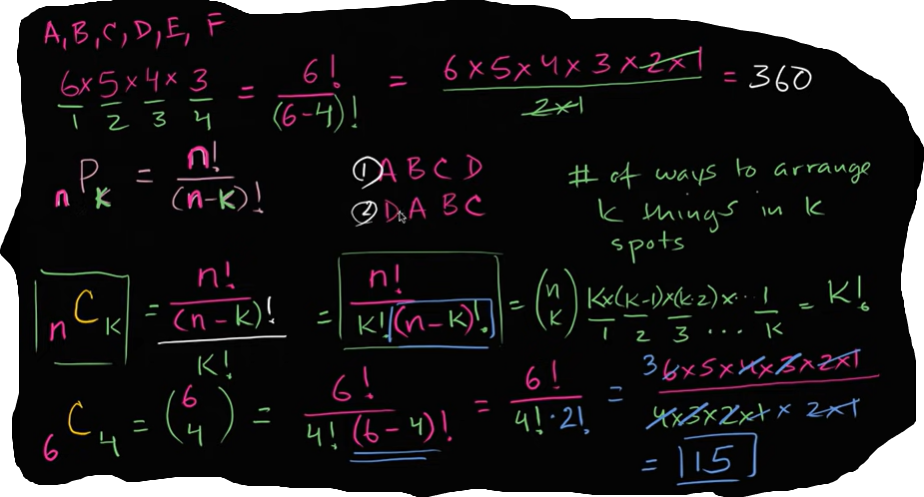 A, B, C, D, E, F
6×5×4×3 / 1 2 3 4 = 6! / (6-4)! = 6×5×4×3×2×1 / 2×1 = 360
nPk = n! / (n-k)!
① A B C D
② D A B C
# of ways to arrange
k things in k
spots
nCk = n! / (n-k)! / k! = n! / k!(n-k)! = (n k)
k×(k-1)×(k-2)×...1 / 1 2 3 ... k = k!
6C4 = (6 4) = 6! / 4!(6-4)! = 6! / 4!·2! = 3 6×5×4×3×2×1 / 4×3×2×1×2×1
= 15